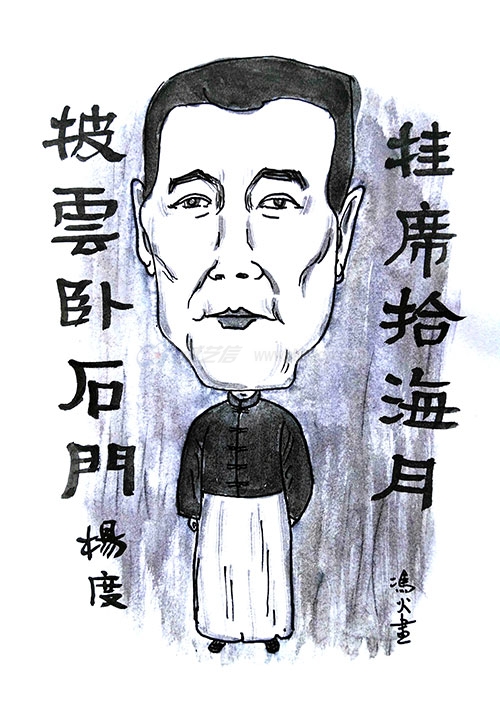 挂席拾海月
披雲卧石門
楊度
馮火畫